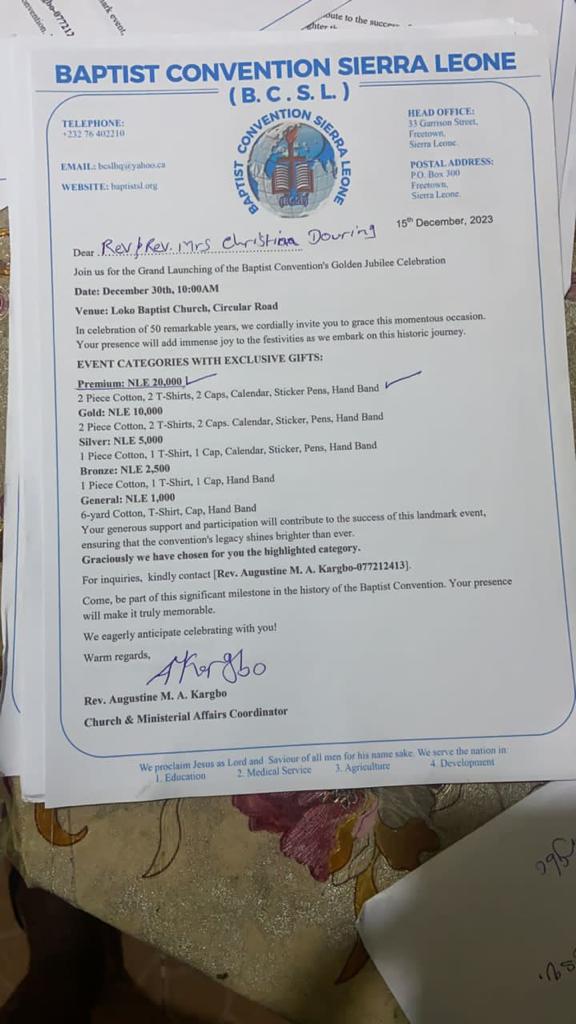 BAPTIST CONVENTION SIERRA LEONE
( B. C . S. L. )
TELEPHONE:
+232 76 402210
EMAIL: bcslhq@yahoo.ca
WEBSITE: baptistsl.org
BAPTIST CONVENTION SIERRA LEONE
(BCSL)
HEAD OFFICE:
33 Garrison Street,
Freetown,
Sierra Leone.
POSTAL ADDRESS:
P.O. Box 300
Freetown,
Sierra Leone.
15th December, 2023
Dear Rev & Rev. Mrs Christian Douring
Join us for the Grand Launching of the Baptist Convention's Golden Jubilee Celebration
Date: December 30th, 10:00AM
Venue: Loko Baptist Church, Circular Road
In celebration of 50 remarkable years, we cordially invite you to grace this momentous occasion.
Your presence will add immense joy to the festivities as we embark on this historic journey.
EVENT CATEGORIES WITH EXCLUSIVE GIFTS:
Premium: NLE 20,000
2 Piece Cotton, 2 T-Shirts, 2 Caps, Calendar, Sticker Pens, Hand Band
Gold: NLE 10,000
2 Piece Cotton, 2 T-Shirts, 2 Caps. Calendar, Sticker, Pens, Hand Band
Silver: NLE 5,000
1 Piece Cotton, 1 T-Shirt, 1 Cap, Calendar, Sticker, Pens, Hand Band
Bronze: NLE 2,500
1 Piece Cotton, 1 T-Shirt, 1 Cap, Hand Band
General: NLE 1,000
6-yard Cotton, T-Shirt, Cap, Hand Band
Your generous support and participation will contribute to the success of this landmark event,
ensuring that the convention's legacy shines brighter than ever.
Graciously we have chosen for you the highlighted category.
For inquiries, kindly contact [Rev. Augustine M. A. Kargbo-077212413].
Come, be part of this significant milestone in the history of the Baptist Convention. Your presence
will make it truly memorable.
We eagerly anticipate celebrating with you!
Warm regards,
AKargbo
Rev. Augustine M. A. Kargbo
Church & Ministerial Affairs Coordinator
We proclaim Jesus as Lord and Saviour of all men for his name sake. We serve the nation in:
1. Education 2. Medical Service 3. Agriculture 4. Development